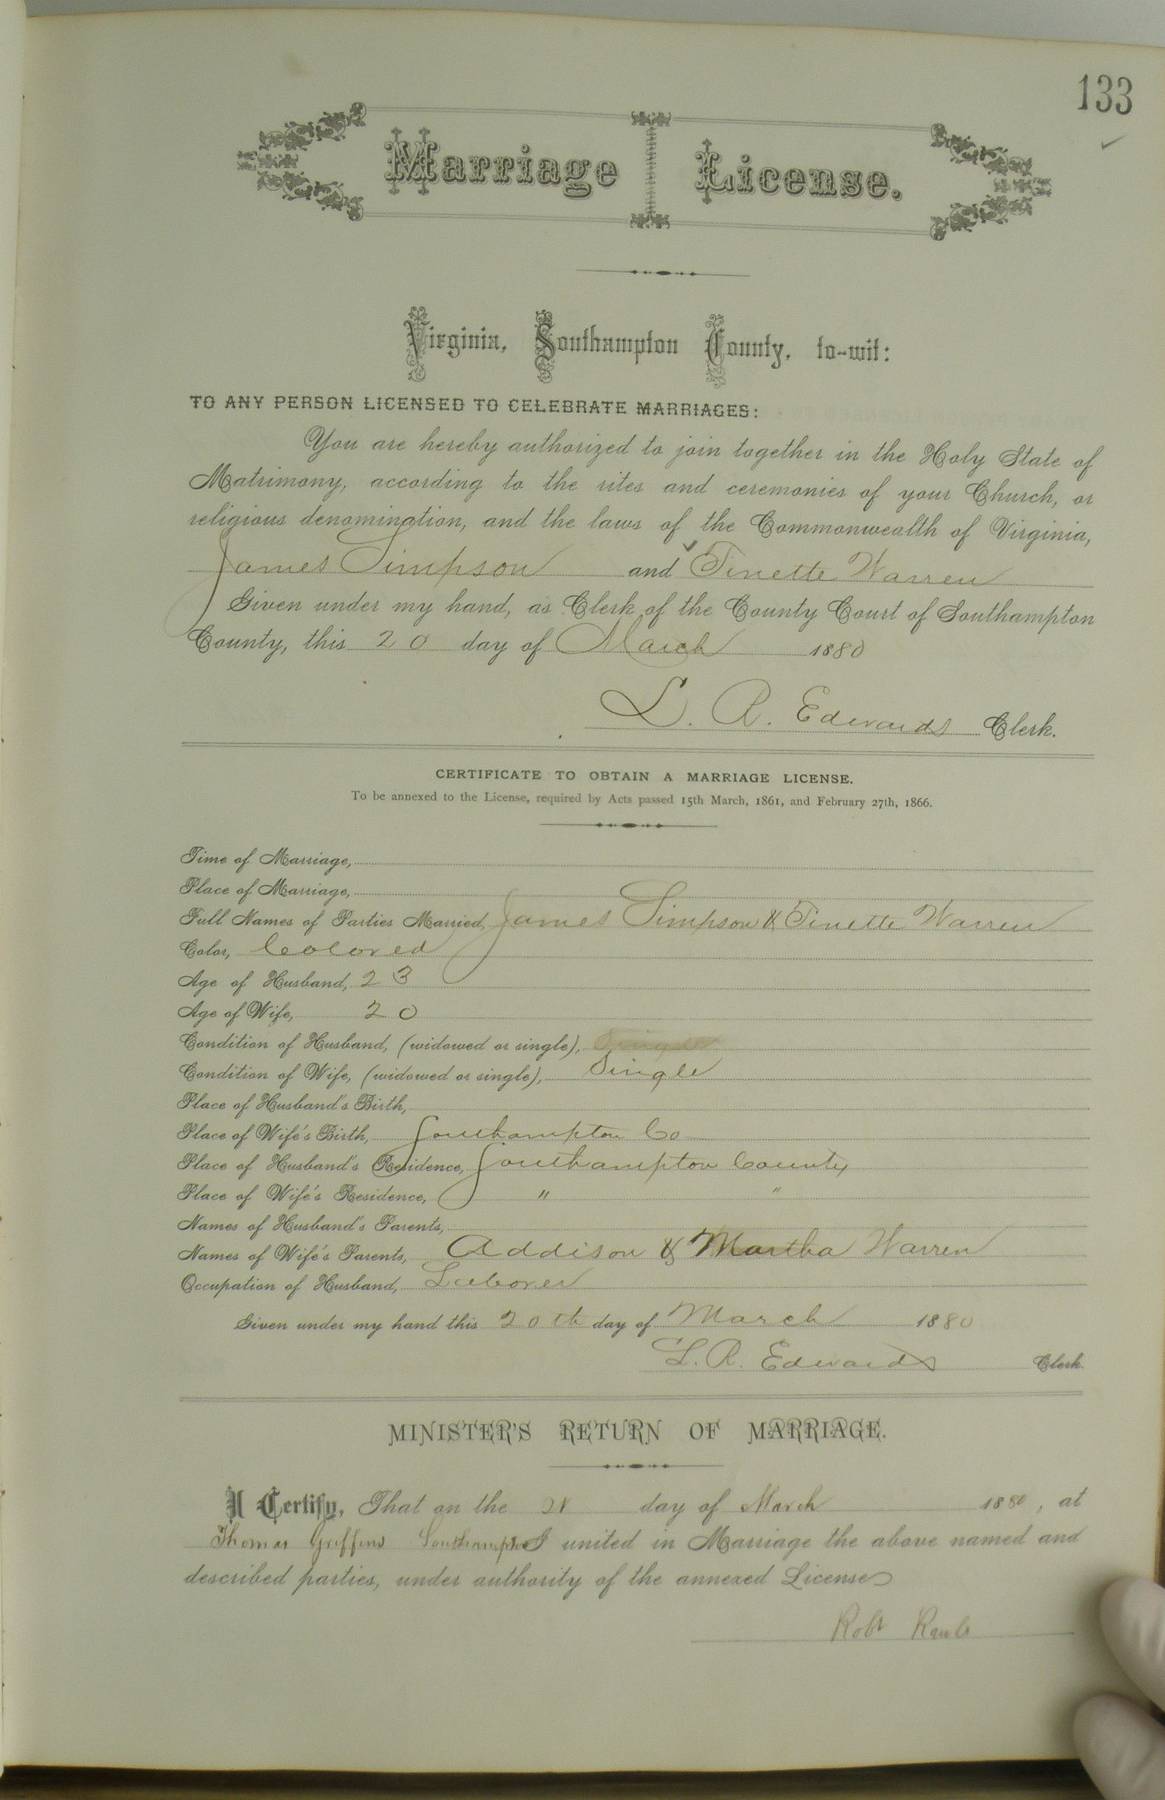 133
Marriage License.
Virginia, Southampton County, to-wit:
TO ANY PERSON LICENSED TO CELEBRATE MARRIAGES:
You are hereby authorized to join together in the Holy State of
Matrimony, according to the rites and ceremonies of your Church, or
religious denomination, and the laws of the Commonwealth of Virginia,
James Simpson and Tinette Warren
Given under my hand, as Clerk of the County Court of Southampton
County, this 20 day of March 1880
L. R. Edwards Clerk.
CERTIFICATE TO OBTAIN A MARRIAGE LICENSE.
To be annexed to the License, required by Acts passed 15th March, 1861, and February 27th, 1866.
Time of Marriage,
Place of Marriage,
Full Names of Parties Married, James Simpson & Tinette Warren
Color, Colored
Age of Husband, 23
Age of Wife, 20
Condition of Husband, (widowed or single), Single
Condition of Wife, (widowed or single), Single
Place of Husband's Birth,
Place of Wife's Birth, Southampton Co
Place of Husband's Residence, Southampton County
Place of Wife's Residence, " "
Names of Husband's Parents,
Names of Wife's Parents, Addison & Martha Warren
Occupation of Husband, Laborer
Given under my hand this 20th day of March 1880
L. R. Edwards Clerk.
MINISTER'S RETURN OF MARRIAGE.
I Certify, That on the day of March 1880, at
Thomas Griffins Southampton I united in Marriage the above named and
described parties, under authority of the annexed License
Robt